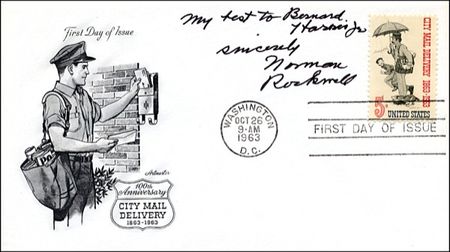 First Day of Issue
My best to Bernard
Harris Jr
sincerely
Norman
Rockwell
CITY MAIL DELIVERY 1863-1963
5¢
UNITED STATES
WASHINGTON
OCT 26
9-AM
1963
D.C.
FIRST DAY OF ISSUE
Artmaster
100th
Anniversary
CITY MAIL
DELIVERY
1863-1963